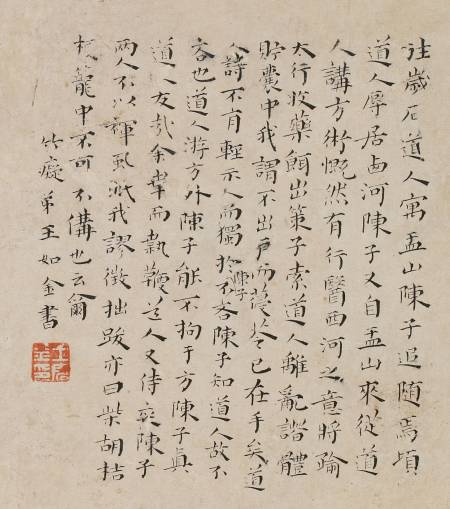 往歲石道人寓盂山陳子追隨焉頃
道人厚居西河陳子又自盂山來從道
人講方術慨然有行醫西河之意將踰
大行收藥餌出策子索道人離亂諧體
貯囊中我謂不出戶而苓已在手矣道
人詩不肯輕示人而獨於陳子不吝陳子知道人故不
吝也道人游方外陳子能不拘于方陳子真
道人友哉余幸而執鞭道人又侍陳子
兩人不以我謬徵拙跋亦曰柴胡桔
梗籠中不可不備也云爾
竹癡弟王如金書